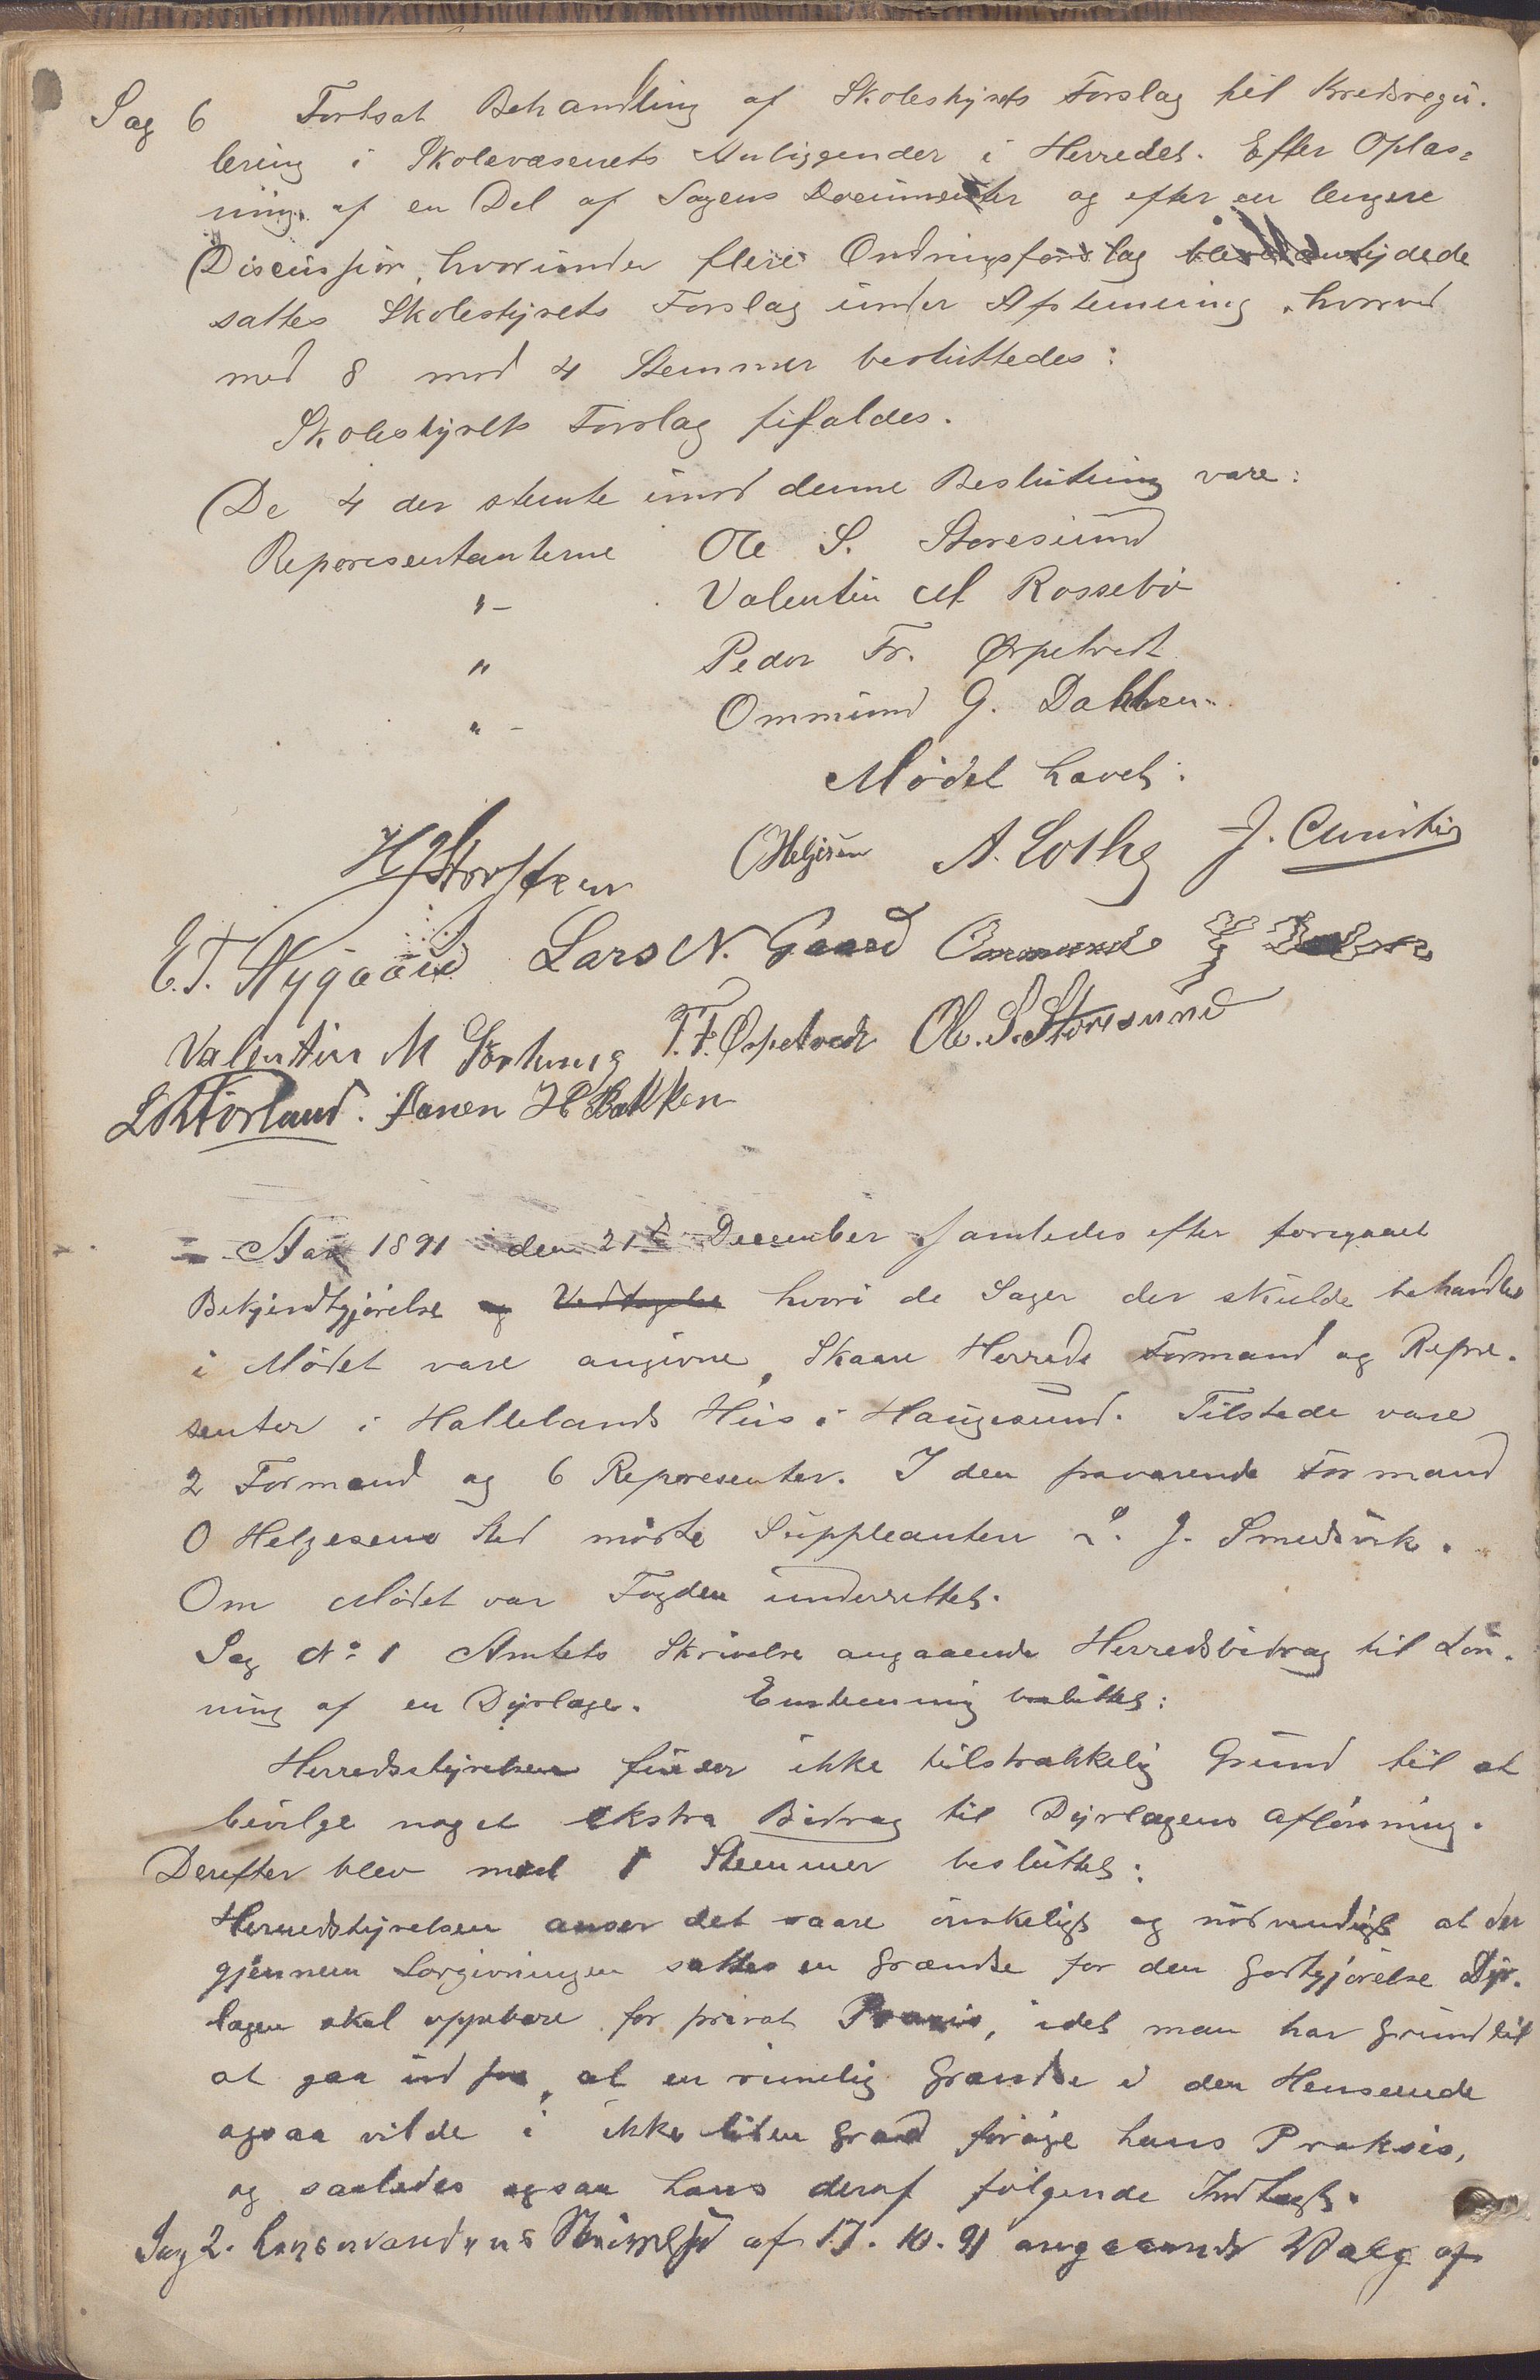 Sag 6 Fortsat Behandling af Skolestyrets Forslag til Kredsregu-
lering i Skolevæsenets Anliggender i Herredet. Efter Oplæs=
ning af en Del af Sagens Documenter og efter en længere
Discussion, hvorunder flere Ændringsforslag
sattes Skolestyrets Forslag under Afstemning, hvorved
med 8 mod 4 Stemmer besluttedes:
Skolestyrets Forslag tifaldes.
De 4 der stemte imod denne Beslutning vare:
Representanterne Ole S. Storesund
"- Valentin M Rossebø
" Peder Fr. Ørpetvedt
"- Ommund G. Dakken
Mødet hævet.
O Helgesen A. Lothe J.
E. T. Nygaard Lars N. Gaard Ommund G
Valentin M T. F. Ørpetvedt Ole. S. Storesund
Førland. H Bakken
Aar 1891 den 21de December samledes efter foregaaet
Bekjendtgjørelse og Vedtagelse hvori de Sager der skulde behandles
i Mødet vare angivne, Skaare Herreds Formænd og Repre-
senter i Hallelands Hus i Haugesund. Tilstede vare
2 Formænd og 6 Representer. I den fraværende Formand
O Helgesens Sted mødte Suppleanten L. J. Smedsvik.
Om Mødet var Fogden underrettet.
Sag No 1 Amtets Skrivelse angaaende Herredsbidrag til Løn-
ning af en Dyrlæge. Enstemmig besluttet:
Herredsstyrelsen finder ikke tilstrækkelig Grund til at
bevilge noget ekstra Bidrag til Dyrlægens Aflønning.
Derefter blev med Stemmer besluttet:
Herredstyrelsen anser det være ønskeligt og nødvendigt at der
gjennem Lovgivningen sættes en Grændse for den Godtgjørelse Dyr-
lægen skal oppebære for privat Praxis, idet man har Grund til
at gaa ud fra, at en rimelig Grændse i den Henseende
ogsaa vilde i ikke liten Grad forøge hans Praksis,
og saaledes ogsaa hans deraf følgende Indtægt.
Sag 2. Lensmandens Skrivelse af 17. 10. 91 angaaende Valg af